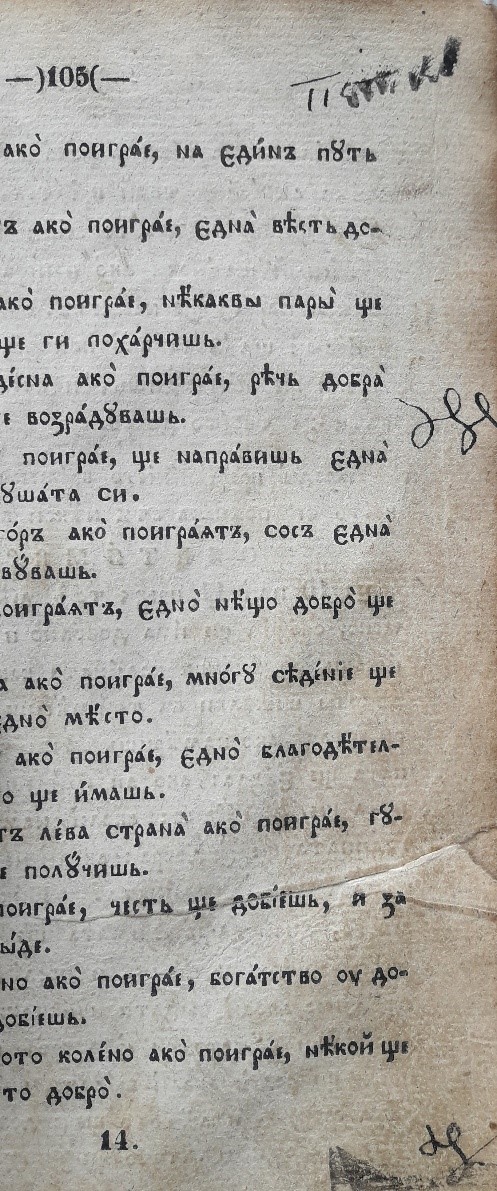 —)105(—
ако̀ поигра́е, на єди́нъ пꙋть
ъ ако̀ поигра́е, єдна̀ вѣсть до-
ако̀ поигра́е, нѣ́каквы пары̀ ще
ще ги поха́рчишь.
де́сна ако̀ поигра́е, рѣчь добра̀
е возра́дꙋвашь.
поигра́е, ще напра́вишь єдна̀
ꙋша́та си.
го́ръ ако̀ поигра́ятъ, сосъ єдна̀
вꙋ́вашь.
оигра́ятъ, єдно̀ нѣ́що добро̀ ще
а ако̀ поигра́е, мно́гꙋ сѣде́нїе ще
дно̀ мѣ́сто.
ако̀ поигра́е, єдно̀ благодѣ́тел-
о ще и́машь.
тъ лѣ́ва страна̀ ако̀ поигра́е, гꙋ-
е полꙋ́чишь.
поигра́е, честь ще добїешь, и за
ы́де.
но ако̀ поигра́е, бога́тство оу до-
добїешь.
ото колѣ́но ако̀ поигра́е, нѣ́кой ще
то добро̀.
14.